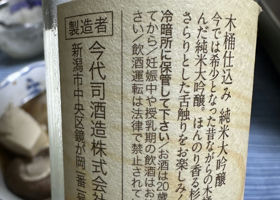 木桶仕込み 純米大吟醸
今では希少となった昔ながらの木
んだ純米大吟醸。ほんのり香る杉
さらりとした舌触りをお楽しみく
冷暗所に保管して下さい お酒は20歳
てから/妊娠中や授乳期の飲酒はお
さい/飲酒運転は法律で禁止されて
製造者 今代司酒造株式会
新潟市中央区鏡が岡一番